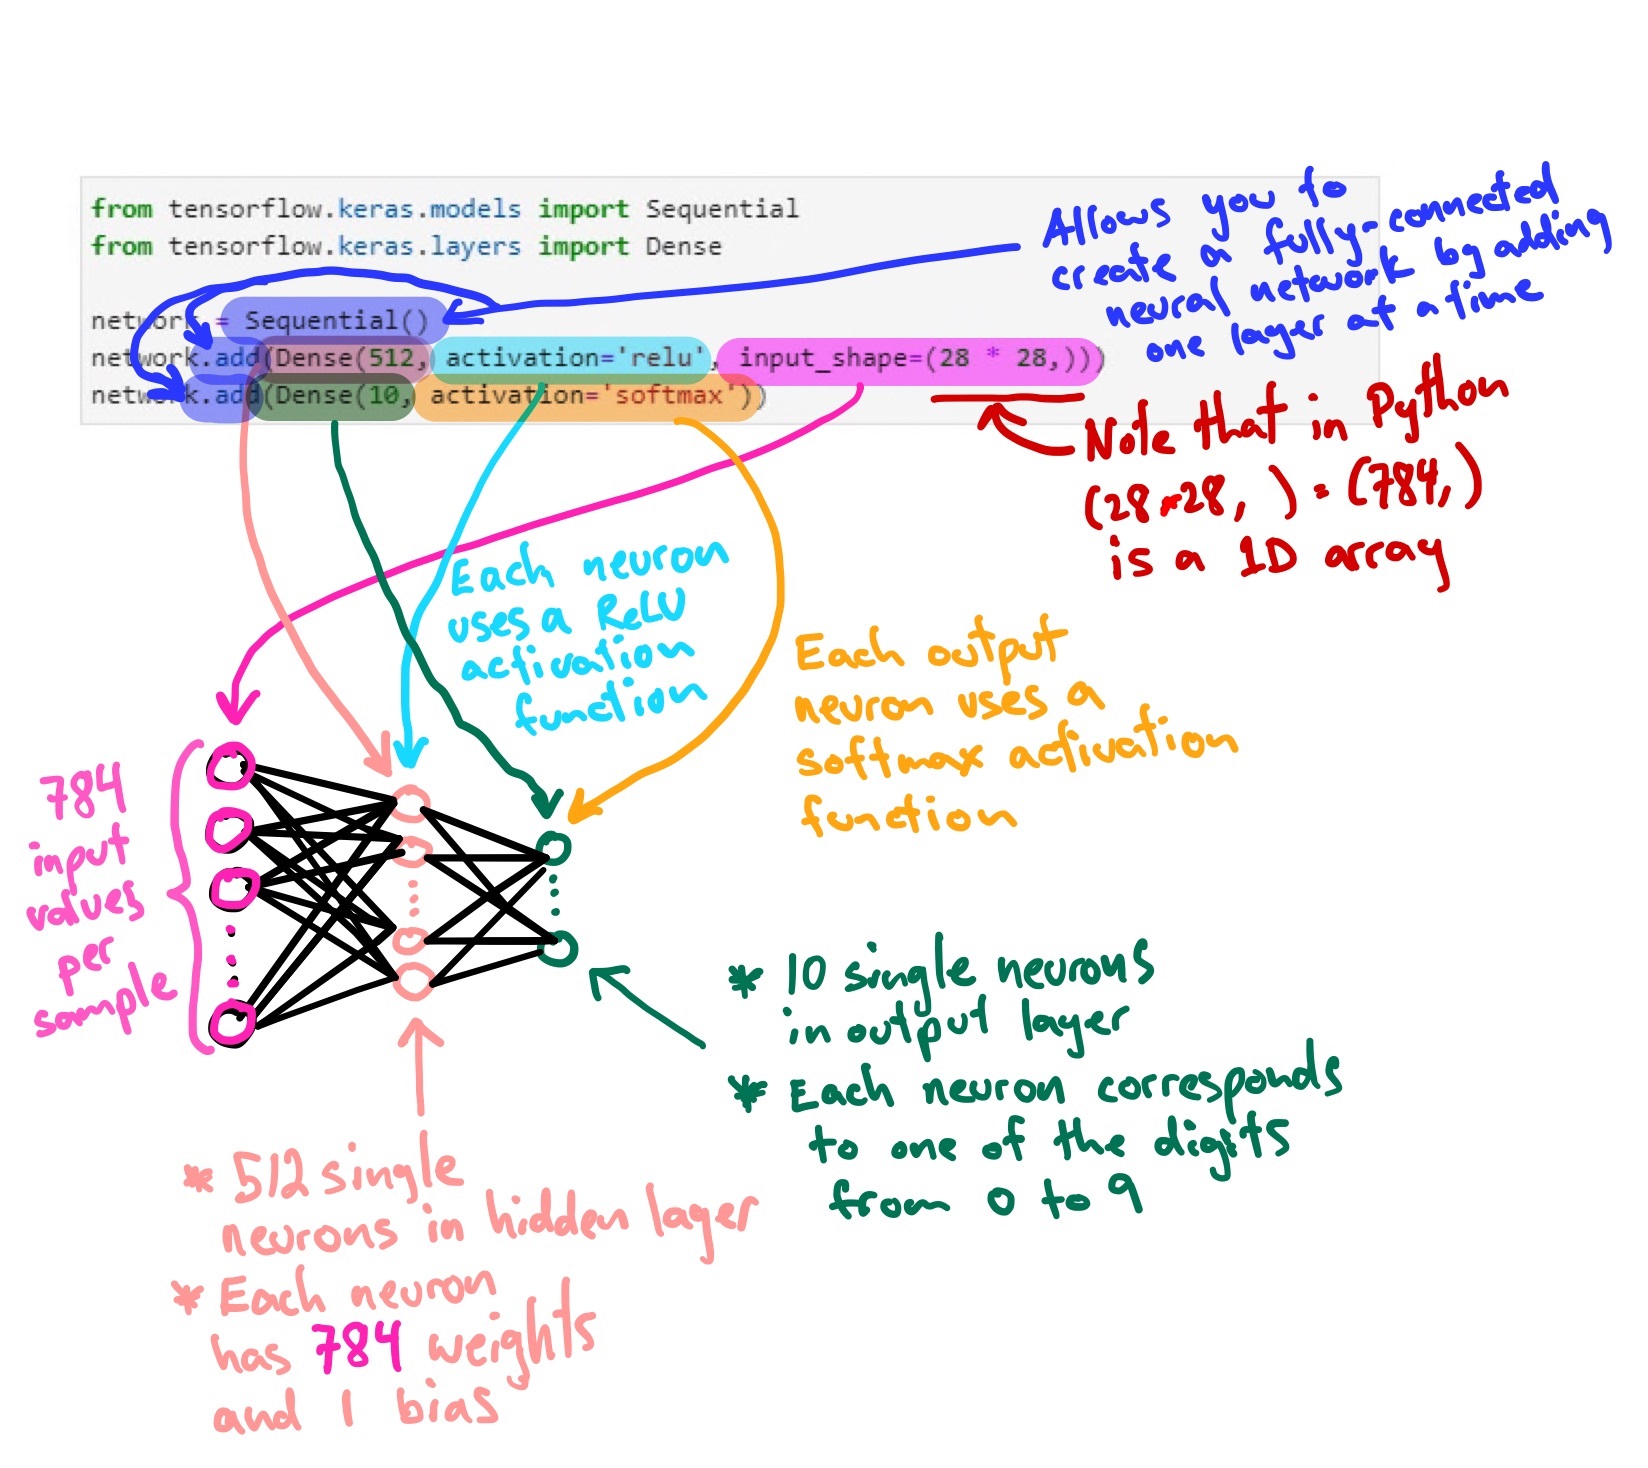 from tensorflow.keras.models import Sequential
from tensorflow.keras.layers import Dense
network = Sequential()
network.add(Dense(512, activation='relu', input_shape=(28 * 28,)))
network.add(Dense(10, activation='softmax'))
Allows you to
create a fully-connected
neural network by adding
one layer at a time
Note that in Python
(28*28, ) = (784,)
is a 1D array
Each neuron
uses a ReLU
activation
function
Each output
neuron uses a
softmax activation
function
784
input
values
per
sample
* 10 single neurons
in output layer
* Each neuron corresponds
to one of the digits
from 0 to 9
* 512 single
neurons in hidden layer
* Each neuron
has 784 weights
and 1 bias